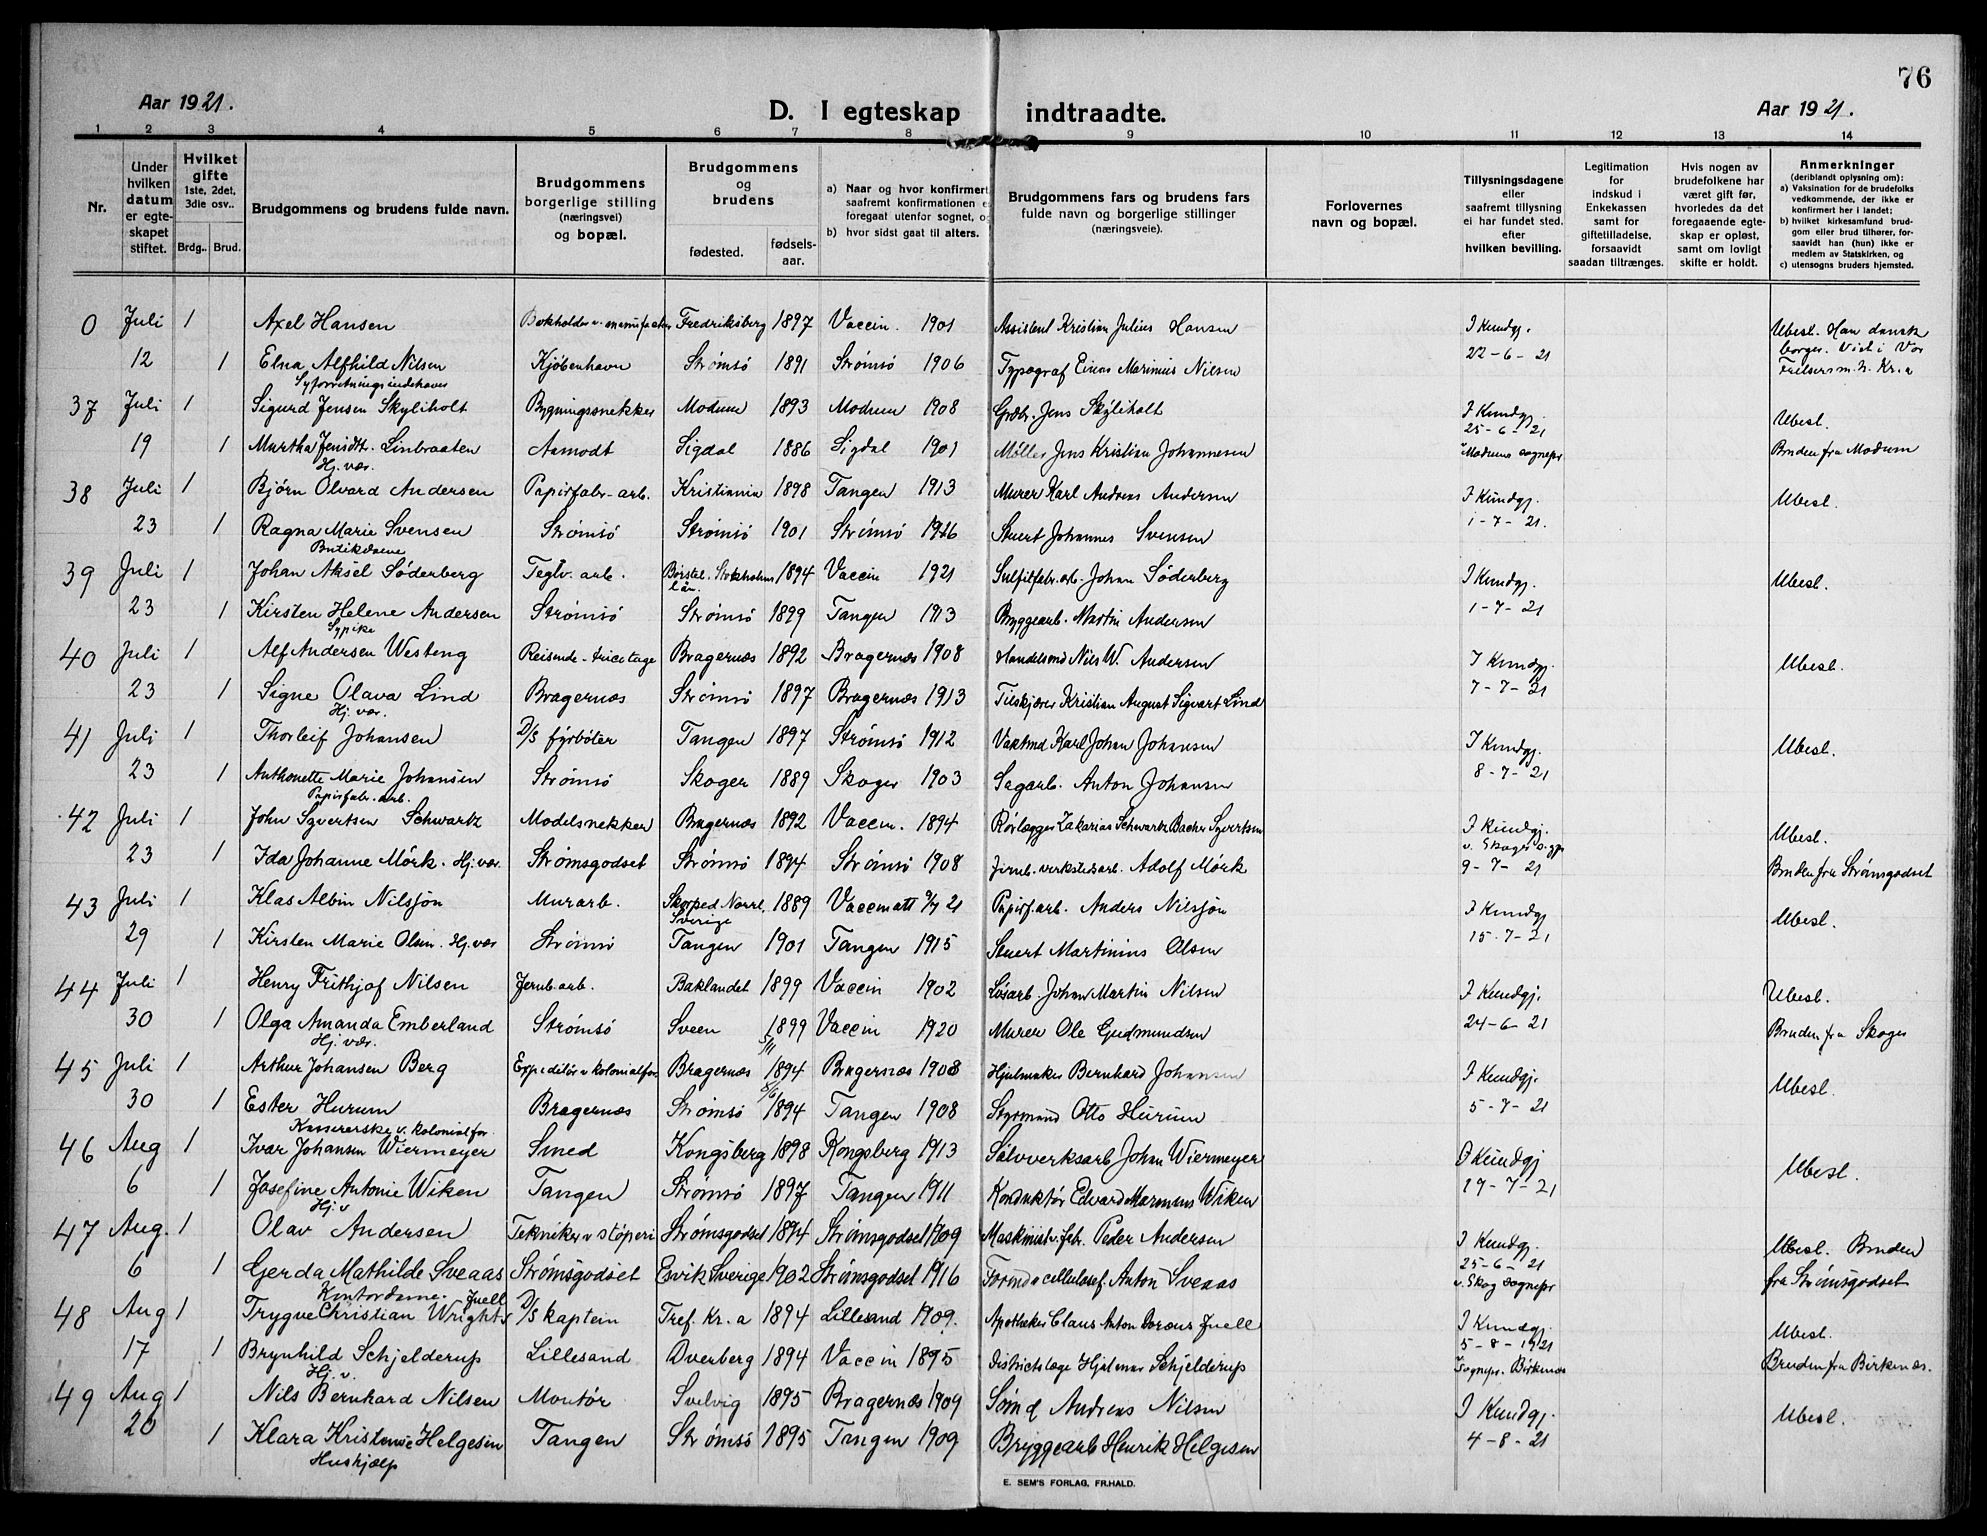 76
Aar 1921.
D. I egteskap indtraadte.
Aar 1921.
1 2 3 4 5 6 7 8 9 10 11 12 13 14
Nr.
Under hvilken datum er egteskapet stiftet.
Hvilket gifte 1ste, 2det, 3die osv..
Brdg.. Brud.
Brudgommens og brudens fulde navn.
Brudgommens borgerlige stilling (næringsvei) og bopæl.
Brudgommens og brudens
fødested. fødselsaar.
a) Naar og hvor konfirmert, saafremt konfirmationen er foregaat utenfor sognet, og
b) hvor sidst gaat til alters.
Brudgommens fars og brudens fars fulde navn og borgerlige stillinger (næringsveie).
Forlovernes navn og bopæl.
Tillysningsdagene eller saafremt tillysning ei har fundet sted. efter hvilken bevilling.
Legitimation for indskud i Enkekassen samt for giftetilladelse, forsaavidt saadan tiltrænges.
Hvis nogen av brudefolkene har været gift før, hvorledes da det foregaaende egteskap er opløst, samt om lovligt skifte er holdt.
Anmerkninger (deriblandt oplysning om):
a) Vaksination for de brudefolks vedkommende, der ikke er konfirmert her i landet;
b) hvilket kirkesamfund brudgom eller brud tilhører, forsaavidt han (hun) ikke er medlem av Statskirken, og
c) utensogns bruders hjemsted.
0 Juli 1 Axel Hansen Bokholder v. manufactur Fredriksberg 1897 Vaccin. 1901 Assistent Kristian Julius Hansen I Kundgj. Ubesl. Han dansk
12 1 Elna Alfhild Nilsen Kjøbenhavn Strømsø 1891 Strømsø 1906 Typograf Einar Marinius Nilsen 22-6-21 borger. Viet i Vor Frelsers m.h. Kr.a
Syforretningsindehaver
37 Juli 1 Sigurd Jensen Skyliholt Bygningssnekker Modum 1893 Modum 1908 Grdbr. Jens Skyliholt I Kundgj. Ubesl.
19 1 Martha Jensdtr. Linbraaten Aamodt Sigdal 1886 Sigdal 1901 Møller Jens Kristian Johannesen 25-6-21 Modums sognepr Bruden fra Modum
Hj. vær.
38 Juli 1 Bjørn Olvard Andersen Papirfabr-arb. Kristiania 1898 Tangen 1913 Murer Karl Andreas Andersen I Kundgj. Ubesl.
23 1 Ragna Marie Svensen Strømsø Strømsø 1901 Strømsø 1916 Stuert Johannes Svensen 1-7-21.
Butikdame
39 Juli 1 Johan Aksel Søderberg Teglv. arb. Børstel. Stockholms län 1894 Vaccin 1921 Sulfitfabr.arb. Johan Søderberg I Kundgj. Ubesl.
23 1 Kirsten Helene Andersen Strømsø Strømsø 1899 Tangen 1913 Byggearb. Martin Andersen 1-7-21
Sypike
40 Juli 1 Alf Andersen Westeng Reisende-tricotage Bragernæs 1892 Bragernæs 1908 Handelsmd Nils W. Andersen I Kundgj. Ubesl.
23 1 Signe Olava Lind Bragernæs Strømsø 1897 Bragernæs 1913 Tilskjærer Kristian August Sigvart Lind 7-7-21
Hj. vær.
41 Juli 1 Thorleif Johansen D/s fyrbøter Tangen 1897 Strømsø 1912 Vaktmd Karl Johan Johansen I Kundgj. Ubesl.
23 1 Anthonette Marie Johansen Strømsø Skoger 1889 Skoger 1903 Sagarb. Anton Johansen 8-7-21
Papirfabr. arb.
42 Juli 1 John Syvertsen Schwartz Modelsnekker Bragernæs 1892 Vaccin. 1894 Rørlægger Zakarias Schwartz Bacher Syvertsen I Kundgj. Ubesl.
23 1 Ida Johanne Mørk. Hj.vær. Strømsgodset Strømsø 1894 Strømsø 1908 Jernb. verkstedsarb. Adolf Mørk v. Skoger s.gpr 9-7-21 Bruden fra Strømsgodset
43 Juli 1 Klas Albin Nilsjøn Murarb. Skorped Norrl. Sverige 1889 Vaccinatt 9/7 21 Papirf.arb. Anders Nilsjön I Kundgj Ubesl.
29 1 Kirsten Marie Olsen. Hj.vær Strømsø Tangen 1901 Tangen 1915 Stuert Martinius Olsen 15-7-21
44 Juli 1 Henry Frithjof Nilsen Jernb.arb. Baklandet 1899 Vaccin 1902 Løsarb. Johan Martin Nilsen I Kundgj. Ubesl.
30 1 Olga Amanda Emberland Strømsø Sveen 1899 Vaccin 1920 Murer Ole Gudmundsen 24-6-21 Bruden fra Skoger
Hj. vær. 5/11
45 Juli 1 Arthur Johansen Berg Expeditør v kolonialfor Bragernæs 1894 Bragernæs 1908 Hjulmaker Bernhard Johansen I Kundgj. Ubesl.
30 1 Ester Hurum Bragernæs Strømsø 1894 Tangen 1908 Styrmand Otto Hurum 5-7-21
Kassererske v. kolonialfor.
46 Aug 1 Ivar Johansen Wiermeyer Smed Kongsberg 1898 Kongsberg 1913 Sølvverksarb Johan Wiermeyer I Kundgj Ubesl.
6 1 Josefine Antonie Wiken Tangen Strømsø 1897 Tangen 1911 Konduktør Edvard Marensius Wiken 19-7-21
Hj. v
47 Aug. 1 Olav Andersen Tekniker v støperi Strømsgodset 1894 Strømsgodset 1909 Maskinist v. fabr. Peder Andersen I Kundgj. Ubesl. Bruden
6 1 Gerda Mathilde Sveaas Strømsgodset Esvik Sverige 1902 Strømsgodset 1916 Formd v cellulosef Anton Sveaas 25-6-21 v. Skog sognepr fra Strømsgodset
Kontordame.
48 Aug 1 Trygve Christian Wrights Juell D/s kaptein Tref. Kr. a 1894 Lillesand 1909. Apotheker Claus Anton Juell I Kundgj. Ubesl.
17 1 Brynhild Schjelderup Lillesand Dverberg 1894 Vaccin 1895 Distriktslæge Hjalmar Schjelderup 5-8-1921 Sognepr. Birkenæs Bruden fra Birkenæs.
Hj. v.
49 Aug 1 Nils Bernhard Nilsen Montør Svelvig 1895 Bragernæs 1909 Sømd Andreas Nilsen I Kundgj. Ubesl.
20 1 Klara Kristense Helgesen Tangen Strømsø 1895 Tangen 1909 Bryggearb Henrik Helgesen 4-8-21
Hushjælp
E. SEM'S FORLAG, FR.HALD.